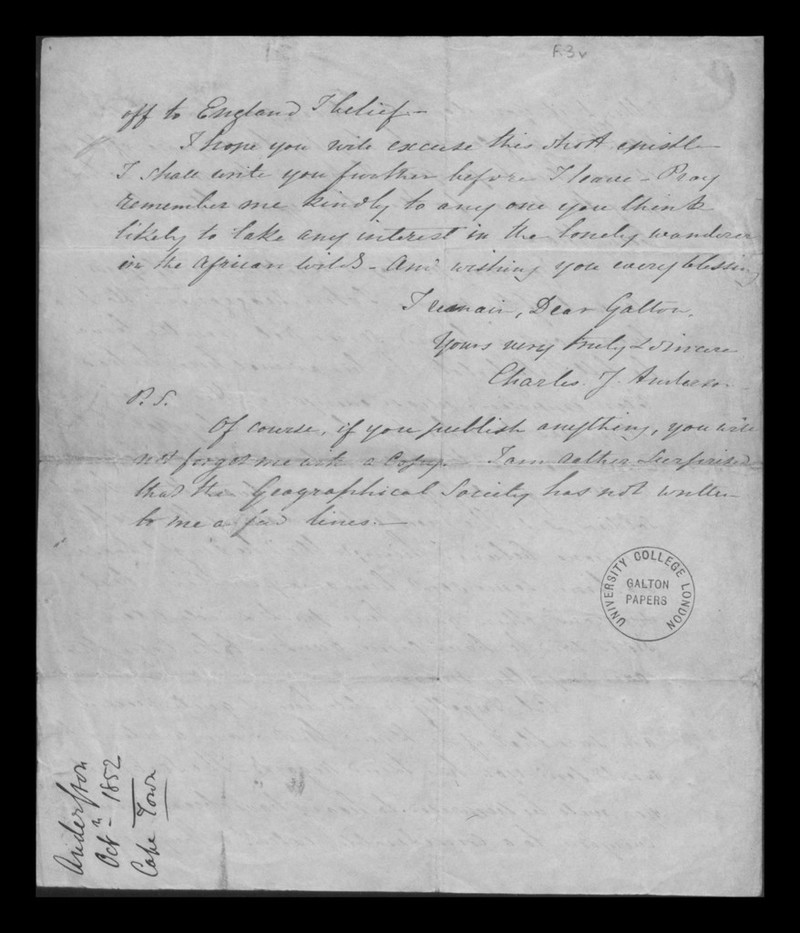 F.3v
off to England I belief—
I hope you will excuse this short epistle
I shall write you further before I leave – Pray
remember me kindly to any one you think
likely to take any interest in the lonely wanderer
in the African wilds – And wishing you every blessing
I remain, Dear Galton,
Yours very truly & sincere
Charles J. Anderson
P.S.
Of course, if you publish anything, you will
not forgot me with a Copy. I am rather surprised
that the Geographical Society has not written
to me a few lines.—
UNIVERSITY COLLEGE LONDON
GALTON
PAPERS
Andersson
Octr 1852
Cape Town